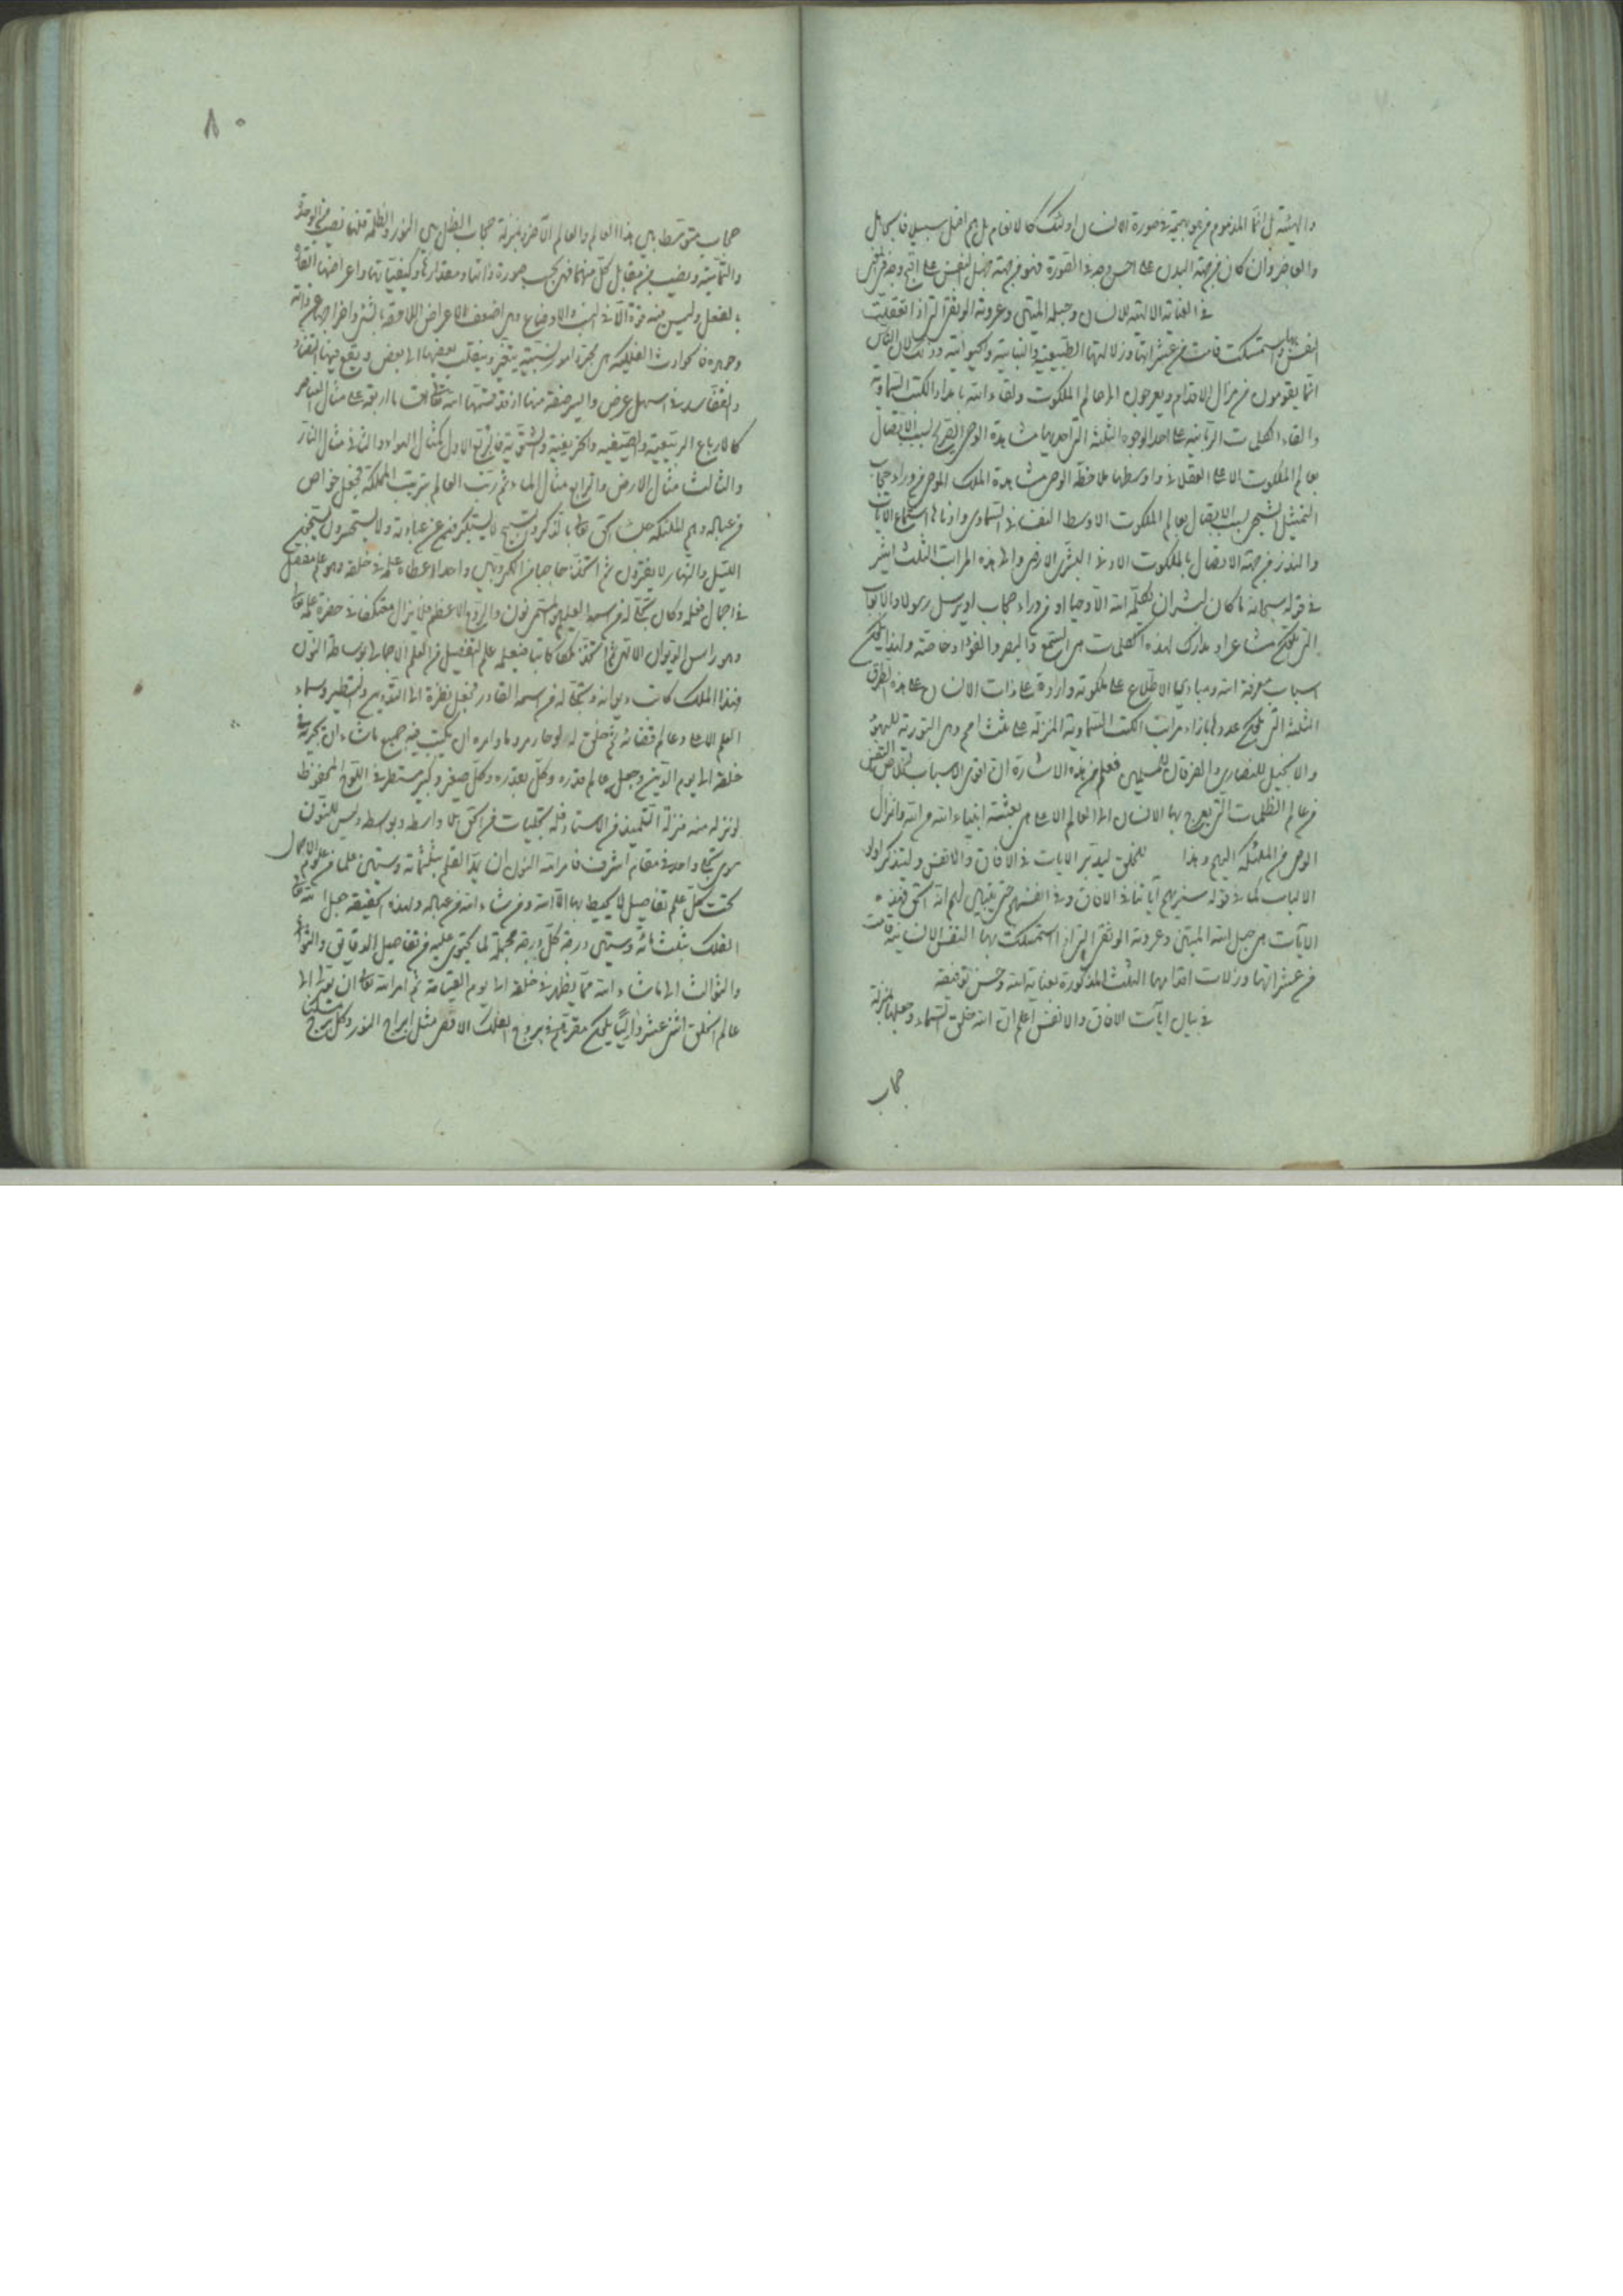 والهيئة بل انما المذموم من هو بهيمة فى صورة الانسان اولئك كالانعام بل هم اضل سبيلا فالجاهل
والفاجر وان كان من جهة البدن على احسن وجه فى الصورة فهو من جهة النفس على اقبح وجه
فى العناية الالهية للانسان وحبله المتين وعروته الوثقى التى اذا تعلقت
النفس بها واستمسكت قامت من عثراتها وزلاتها الطبيعية والنباتية والحيوانية وذلك لان الناس
انما يقومون من مزال الاقدام ويعرجون الى عالم الملكوت ولقاء الله باعداد الكتب السماوية
والقاء الكلمات الربانية على احد الوجوه الثلثة التى احديها مشاهدة الوحى الصريح بسبب الاتصال
بعالم الملكوت الاعلى العقلانى واوسطها ملاحظة الوحى مشاهدة الملك الموحى من وراء حجاب
التمثيل الشبحى بسبب الاتصال بعالم الملكوت الاوسط النفسانى السماوى وادناها استماع الايات
والنذر من جهة الاتصال بالملكوت الادنى البشرى الارضى والى هذه المراتب الثلث اشير
فى قوله سبحانه ما كان لبشر ان يكلمه الله الا وحيا او من وراء حجاب او يرسل رسولا والابواب
التى هى مشاعر او مدارك لهذه الكلمات هى السمع والبصر والفؤاد خاصة ولهذا
اسباب معرفة الله ومبادى الاطلاع على ملكوته وارادة على ذات الانسان على هذه الطرق
الثلثة التى عددها بازاء مراتب الكتب السماوية المنزلة على ثلث امم وهى التورية لليهود
والانجيل للنصارى والفرقان للمسلمين فعلم من هذه الاشارة ان اقوى الاسباب لخلاص النفس
من عالم الظلمات التى يعرج بها الانسان الى العالم الاعلى هى بعثة انبياء الله من الله وانزال
الوحى من الملئكة اليهم وهذا للخلق ليدبر الايات فى الافاق والانفس وليتذكر اولو
الالباب كما فى قوله سنريهم آياتنا فى الافاق وفى انفسهم حتى يتبين لهم انه الحق فهذه
الايات هى حبل الله المتين وعروته الوثقى التى اذا استمسكت بها النفس الانسانية قامت
من عثراتها وزلات اقدامها الثلث المذكورة بعناية الله وحسن توفيقه
فى بيان ايات الافاق والانفس اعلم ان الله خلق السماء وجعلها بمنزلة
حجاب
٨٠
حجاب متوسط بين هذا العالم والعالم الاخر بمنزلة حجاب الظل بين النور والظلمة فلها نصيب من الوحدة
والتمامية ونصيب من مقابل كل منهما فهى بحسب صورة ذاتها ومقدارها وكيفياتها واعراضها القارة
بالفعل وليس فيه قوة الا فى النسب والاوضاع وهى اضعف الاعراض اللاحقة بالشئ واخراجها عن ذاته
وجوهره فالحوادث الفلكية هى مجرد امور نسبية يتغير وينقلب بعضها الى بعض ويقع فيها التضاد
والتفاسد فى اسهل عرض وايسر صفة منها اذ قد قسمها الله تعالى اربعة على مثال العناصر
كالارباع الربيعية والصيفية والخريفية والشتوية فالربع الاول كمثال الهواء والثانى مثال النار
والثالث مثال الارض والرابع مثال الماء ثم رتب العالم بترتيب المملكة فجعل خواص
من عباده وهم الملئكة جلساء الحق تعالى بالذكر والتسبيح لا يستكبرون عن عبادته ولا يستحسرون يسبحون
الليل والنهار لا يفترون ثم اتخذ حاجبا من الكروبيين واحدا اعطاه علمه فى خلقه وهو علم مفصل
فى اجمال فعلمه وكان تجلى له من اسمه العليم فهو المسمى نون والروح الاعظم فلا يزال معتكفا فى حضرة علمه تعالى
وهو راس الديوان الالهى ثم اتخذ ملكا كاتبا فيعلمه علم التفصيل من العلم الاجمالى بوساطة النون
فهذا الملك كاتب ديوانه وتجلى له من اسمه القادر فجعل نظره الى التدوين والتسطير وسماه
القلم الاعلى وعالم قضائه ثم خلق له لوحا زمردا وامره ان يكتب فيه جميع ما شاء ان يجريه فى
خلقه الى يوم الدين وجعل عالم قدره وكل بقدره وكل صغير وكبير مستطر فى اللوح المحفوظ
لونزله منه منزلة التلميذ من الاستاد فله تجليات من الحق بلا واسطة وبواسطة وليس للنون
سوى تجلى واحد فى مقام اشرف فامر الله النون ان يمد القلم بثلثمائة وستين علما من علوم الاجمال
تحت كل علم تفاصيل لا يحيط بها الا الله ومن شاء الله من عباده ولهذه الحقيقة جعل الله تعالى
الفلك بثلثمائة وستين درجة كل درجة مجملة لما يحتوى عليه من تفاصيل الدقايق والثوانى
والثوالث الى ما شاء الله مما يظهر فى خلقه الى يوم القيامة ثم امر الله تعالى ان يتولى
عالم الخلق اثنى عشر واليا مقرهم فى بروج الفلك الاقصى مثل ابراج السور وكل برج